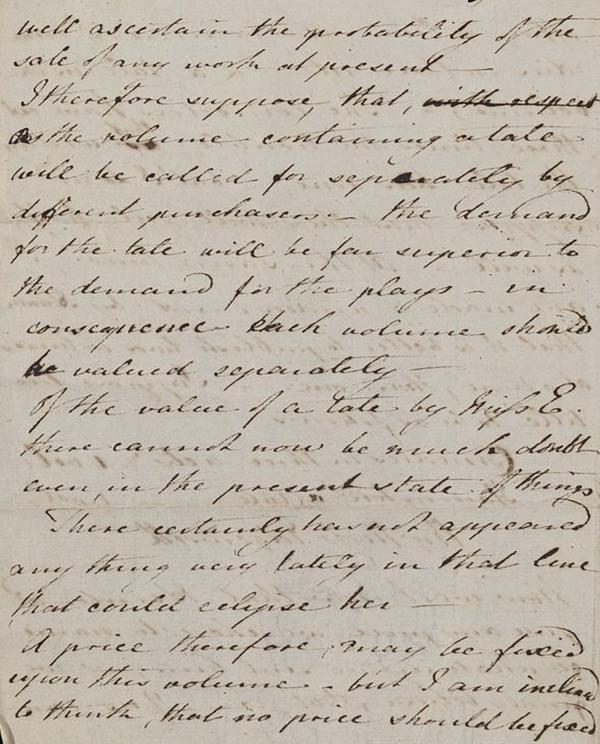 well ascertain the probability of the
sale of any work at present —
I therefore suppose, that, with respect
as the volume containing a tale
will be called for separately by
different purchasers. – the demand
for the tale will be far superior to
the demand for the plays – in
consequence each volume should
be valued separately —
Of the value of a tale by Miss E.
there cannot now be much doubt
even, in the present state of things
There certainly has not appeared
any thing very lately in that line
that could eclipse her —
A price therefore, may be fixed
upon this volume – but I am inclined
to think, that no price should be fixed